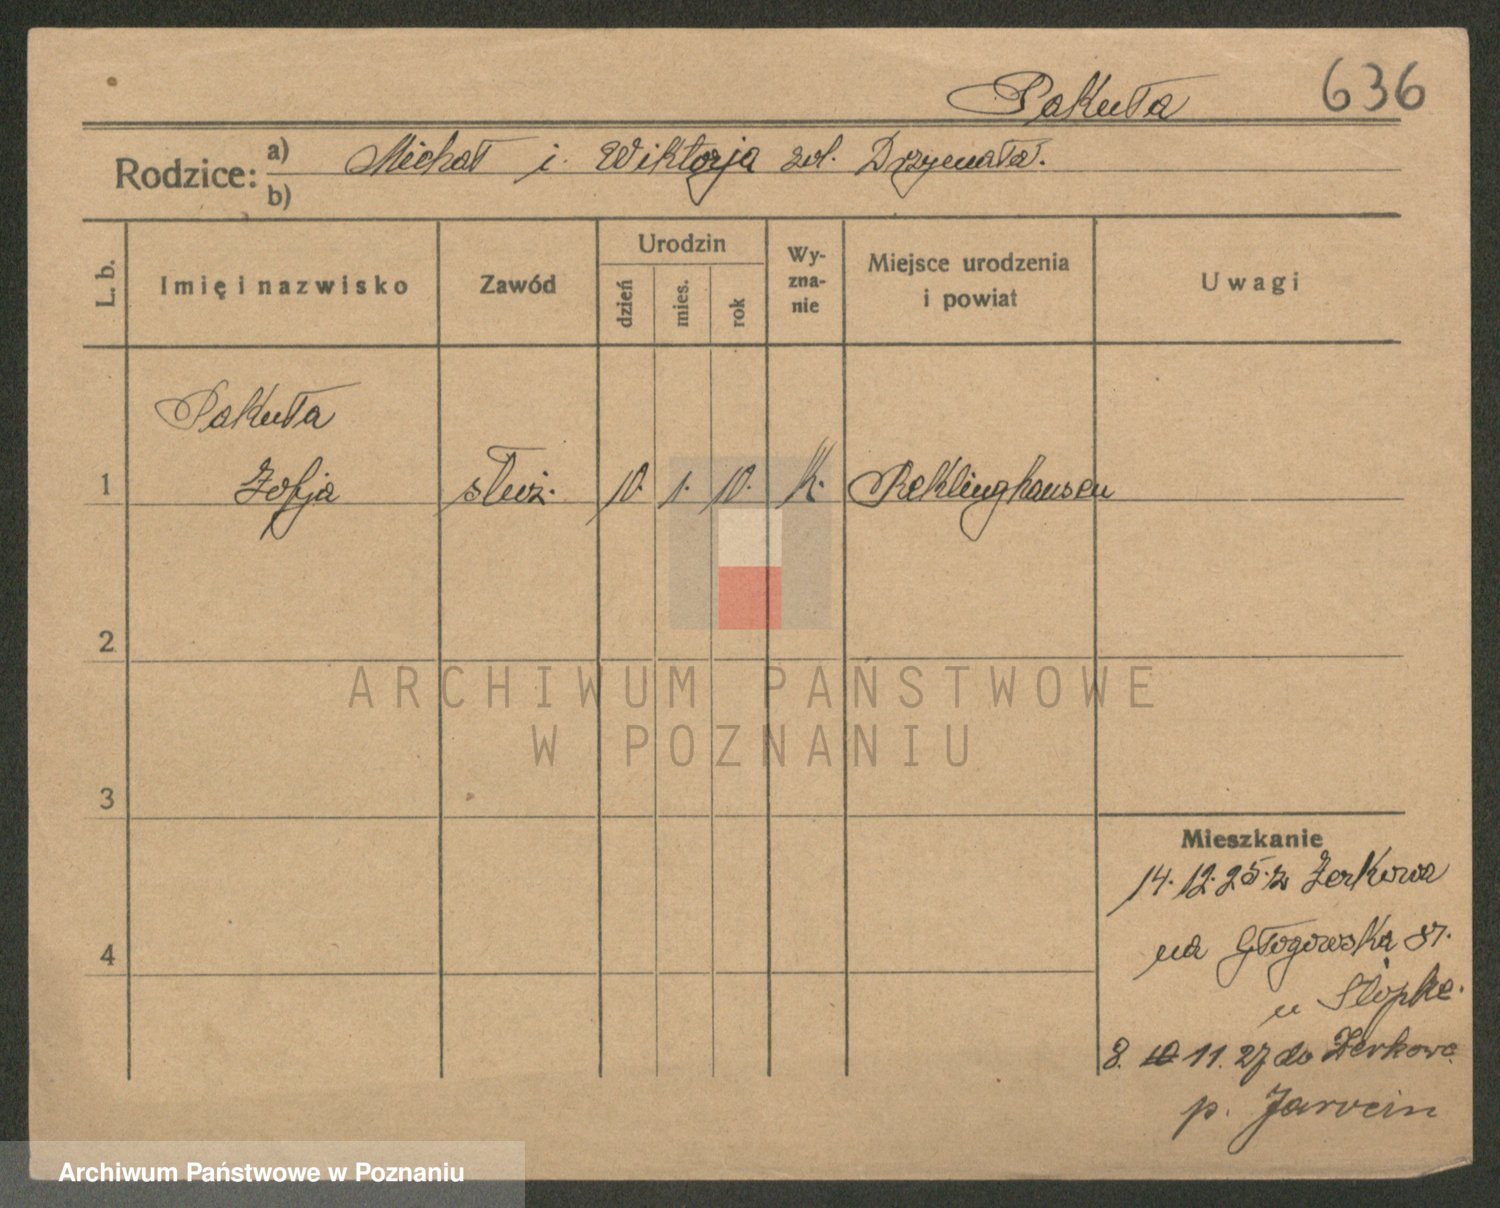 Pakuła 636
Rodzice: a) Michał i Wiktorja zd. Drzymała.
b)
L. b. Imię i nazwisko Zawód Urodzin dzień mies. rok Wy-zna-nie Miejsce urodzenia i powiat Uwagi
Pakuła
1 Zofja służ. 10. 1. 10. K. Reklinghausen
2
ARCHIWUM PAŃSTWOWE
W POZNANIU
3
Mieszkanie
14. 12. 25. z Żerkowa
4 na Głogowska 87.
u
8. 11. 27 do Żerkowa
p. Jarocin
Archiwum Państwowe w Poznaniu